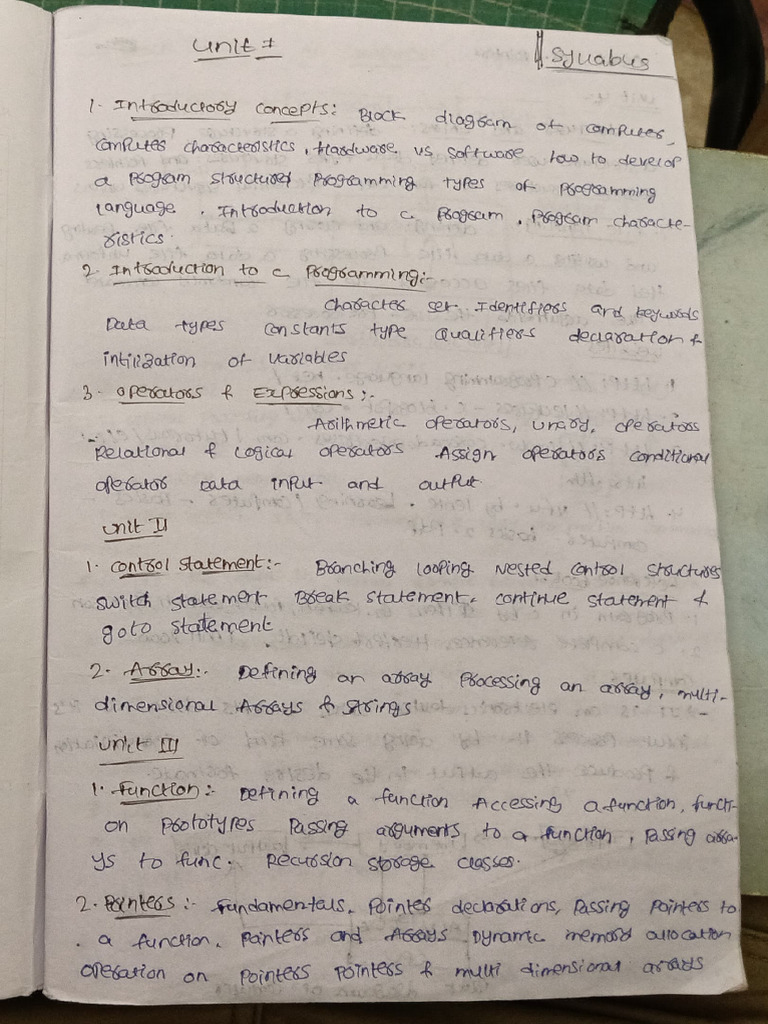 Unit I
Syllabus
1. Introductory concepts: Block diagram of computer,
computer characteristics, Hardware vs Software how to develop
a program structured programming types of programming
language. Introduction to c program, program characte-
ristics.
2. Introduction to c programming:-
character set Identifiers and keywords
Data types constants type qualifiers declaration &
intilization of variables
3. operators & Expressions:-
Arithmetic operators, unary, operators
Relational & Logical operators Assign operators conditional
operator Data input and output
unit II
1. control statement:- Branching looping nested control structures
switch statement, Break statement, continue statement &
goto statement
2. Array:- Defining an array processing an array, multi-
dimensional Arrays & strings
unit III
1. Function:- Defining a function Accessing a function, functi-
on prototypes Passing arguments to a function, Passing arra-
ys to func. Recursion storage classes.
2. Pointers:- Fundamentals, Pointer declarations, Passing pointers to
a function, Pointers and Arrays Dynamic memory allocation
operation on pointers pointers & multi dimensional arrays